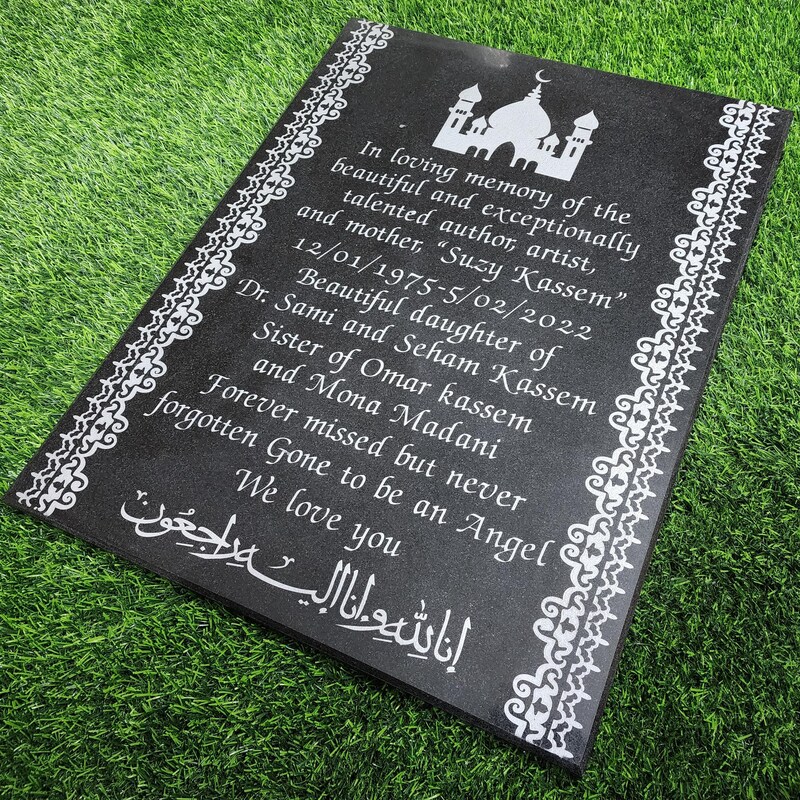 In loving memory of the
beautiful and exceptionally
talented author, artist,
and mother, "Suzy Kassem"
12/01/1975-5/02/2022
Beautiful daughter of
Dr. Sami and Seham Kassem
Sister of Omar kassem
and Mona Madani
Forever missed but never
forgotten Gone to be an Angel
We love you
إنا لله وإنا إليه راجعون